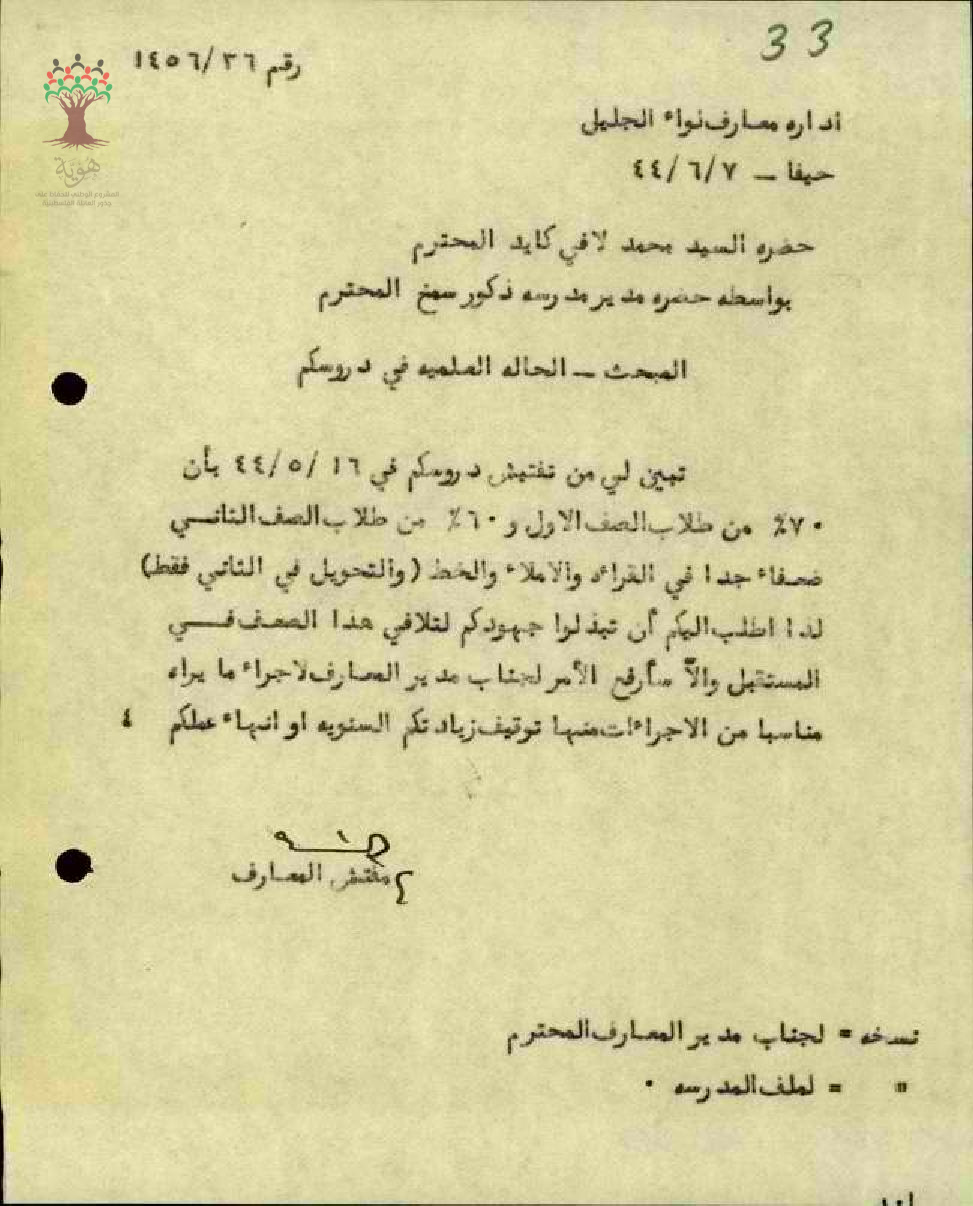 33
رقم ١٤٥٦/٣٦
هوية
المشروع الوطني للحفاظ على
جذور العائلة الفلسطينية
اداره معارف لواء الجليل
حيفا - ٤٤/٦/٧
حضره السيد محمد لافي كايد المحترم
بواسطه حضره مدير مدرسه ذكور سمخ المحترم
المبحث - الحاله العلميه في دروسكم
تبين لي من تفتيش دروسكم في ١٦ /٤٤/٥ بأن
٧٠٪ من طلاب الصف الاول و ٦٠٪ من طلاب الصف الثانـــي
ضعفاء جدا في القراءه والاملاء والخط (والتحويل في الثاني فقط)
لذا اطلب اليكم أن تبذلوا جهودكم لتلافي هذا الضعف فـــي
المستقبل والاّ سأرفع الأمر لجناب مدير المعارف لاجراء ما يراه
مناسبا من الاجراءات منها توقيف زيادتكم السنويه او انهاء عملكم ٤
مفتش المعارف
نسخه = لجناب مدير المعارف المحترم
" = لملف المدرسه ٠